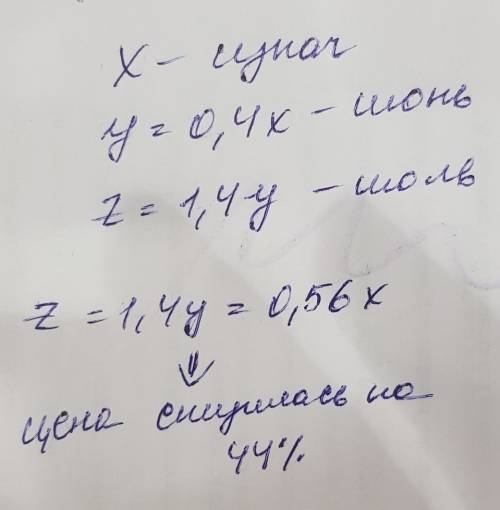 x - изнач
y = 0,4x - июнь
z = 1,4y - июль
z = 1,4y = 0,56x
⇓
цена снизилась на
44%